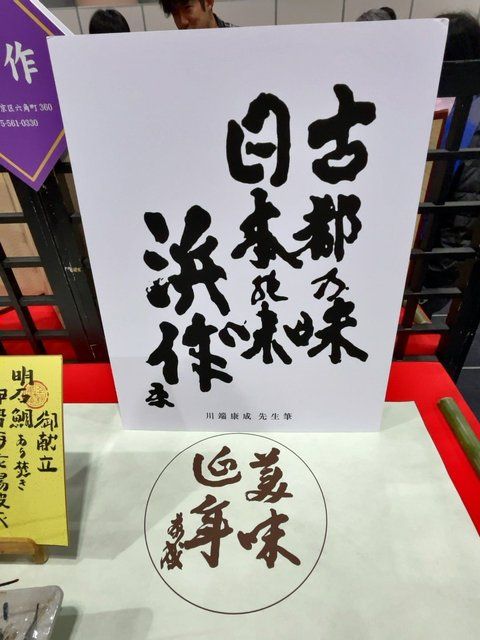 古都の味
日本の味
浜作
康
川端康成 先生筆
美味
延年
康成
作
京区六角町360
5-561-0330
御献立
明石鯛あら焚き